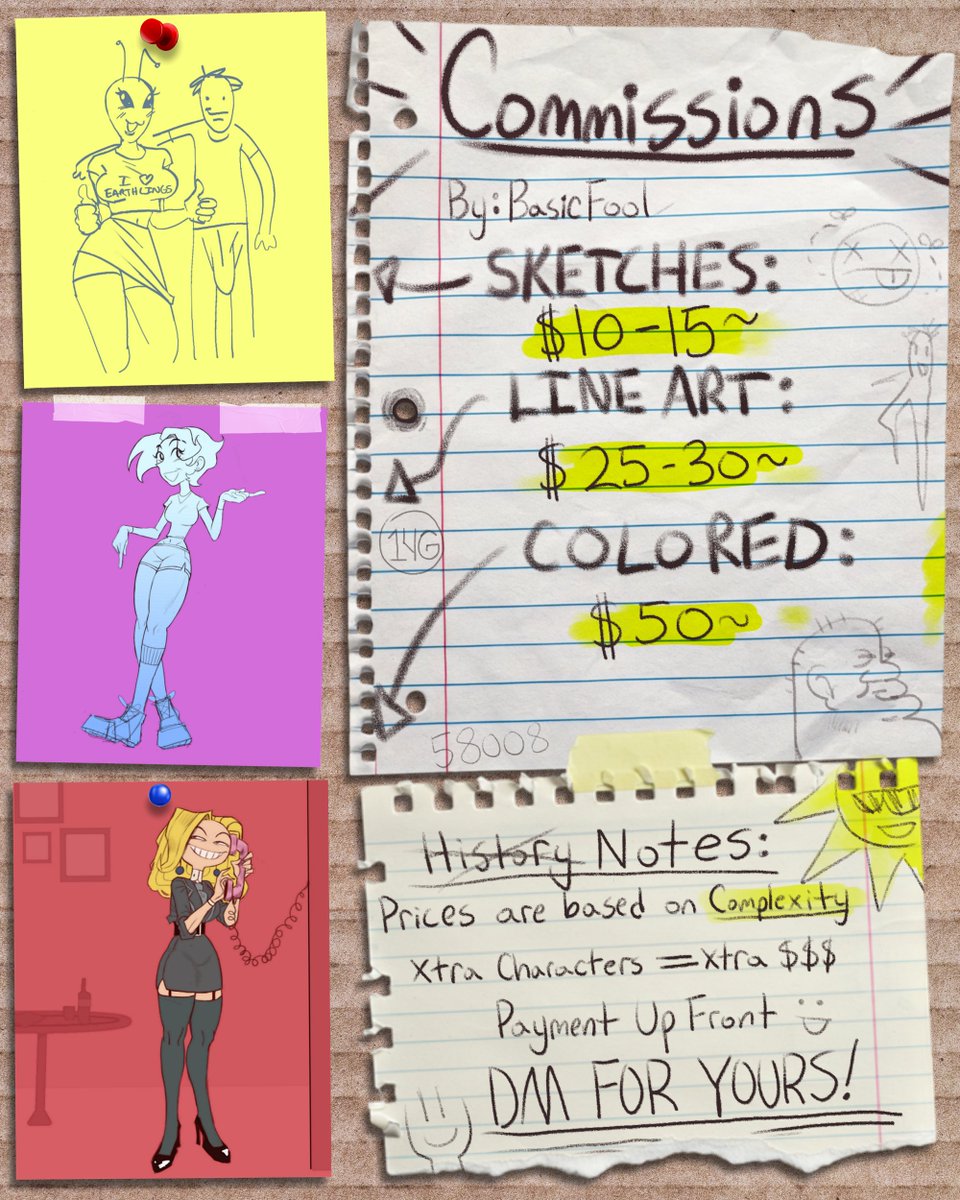 I ♡
EARTHLINGS
Commissions
By: BasicFool
SKETCHES:
$10-15~
LINE ART:
$25-30~
14G
COLORED:
$50~
58008
History Notes:
Prices are based on Complexity
Xtra Characters = Xtra $$$
Payment Up Front
DM FOR YOURS!